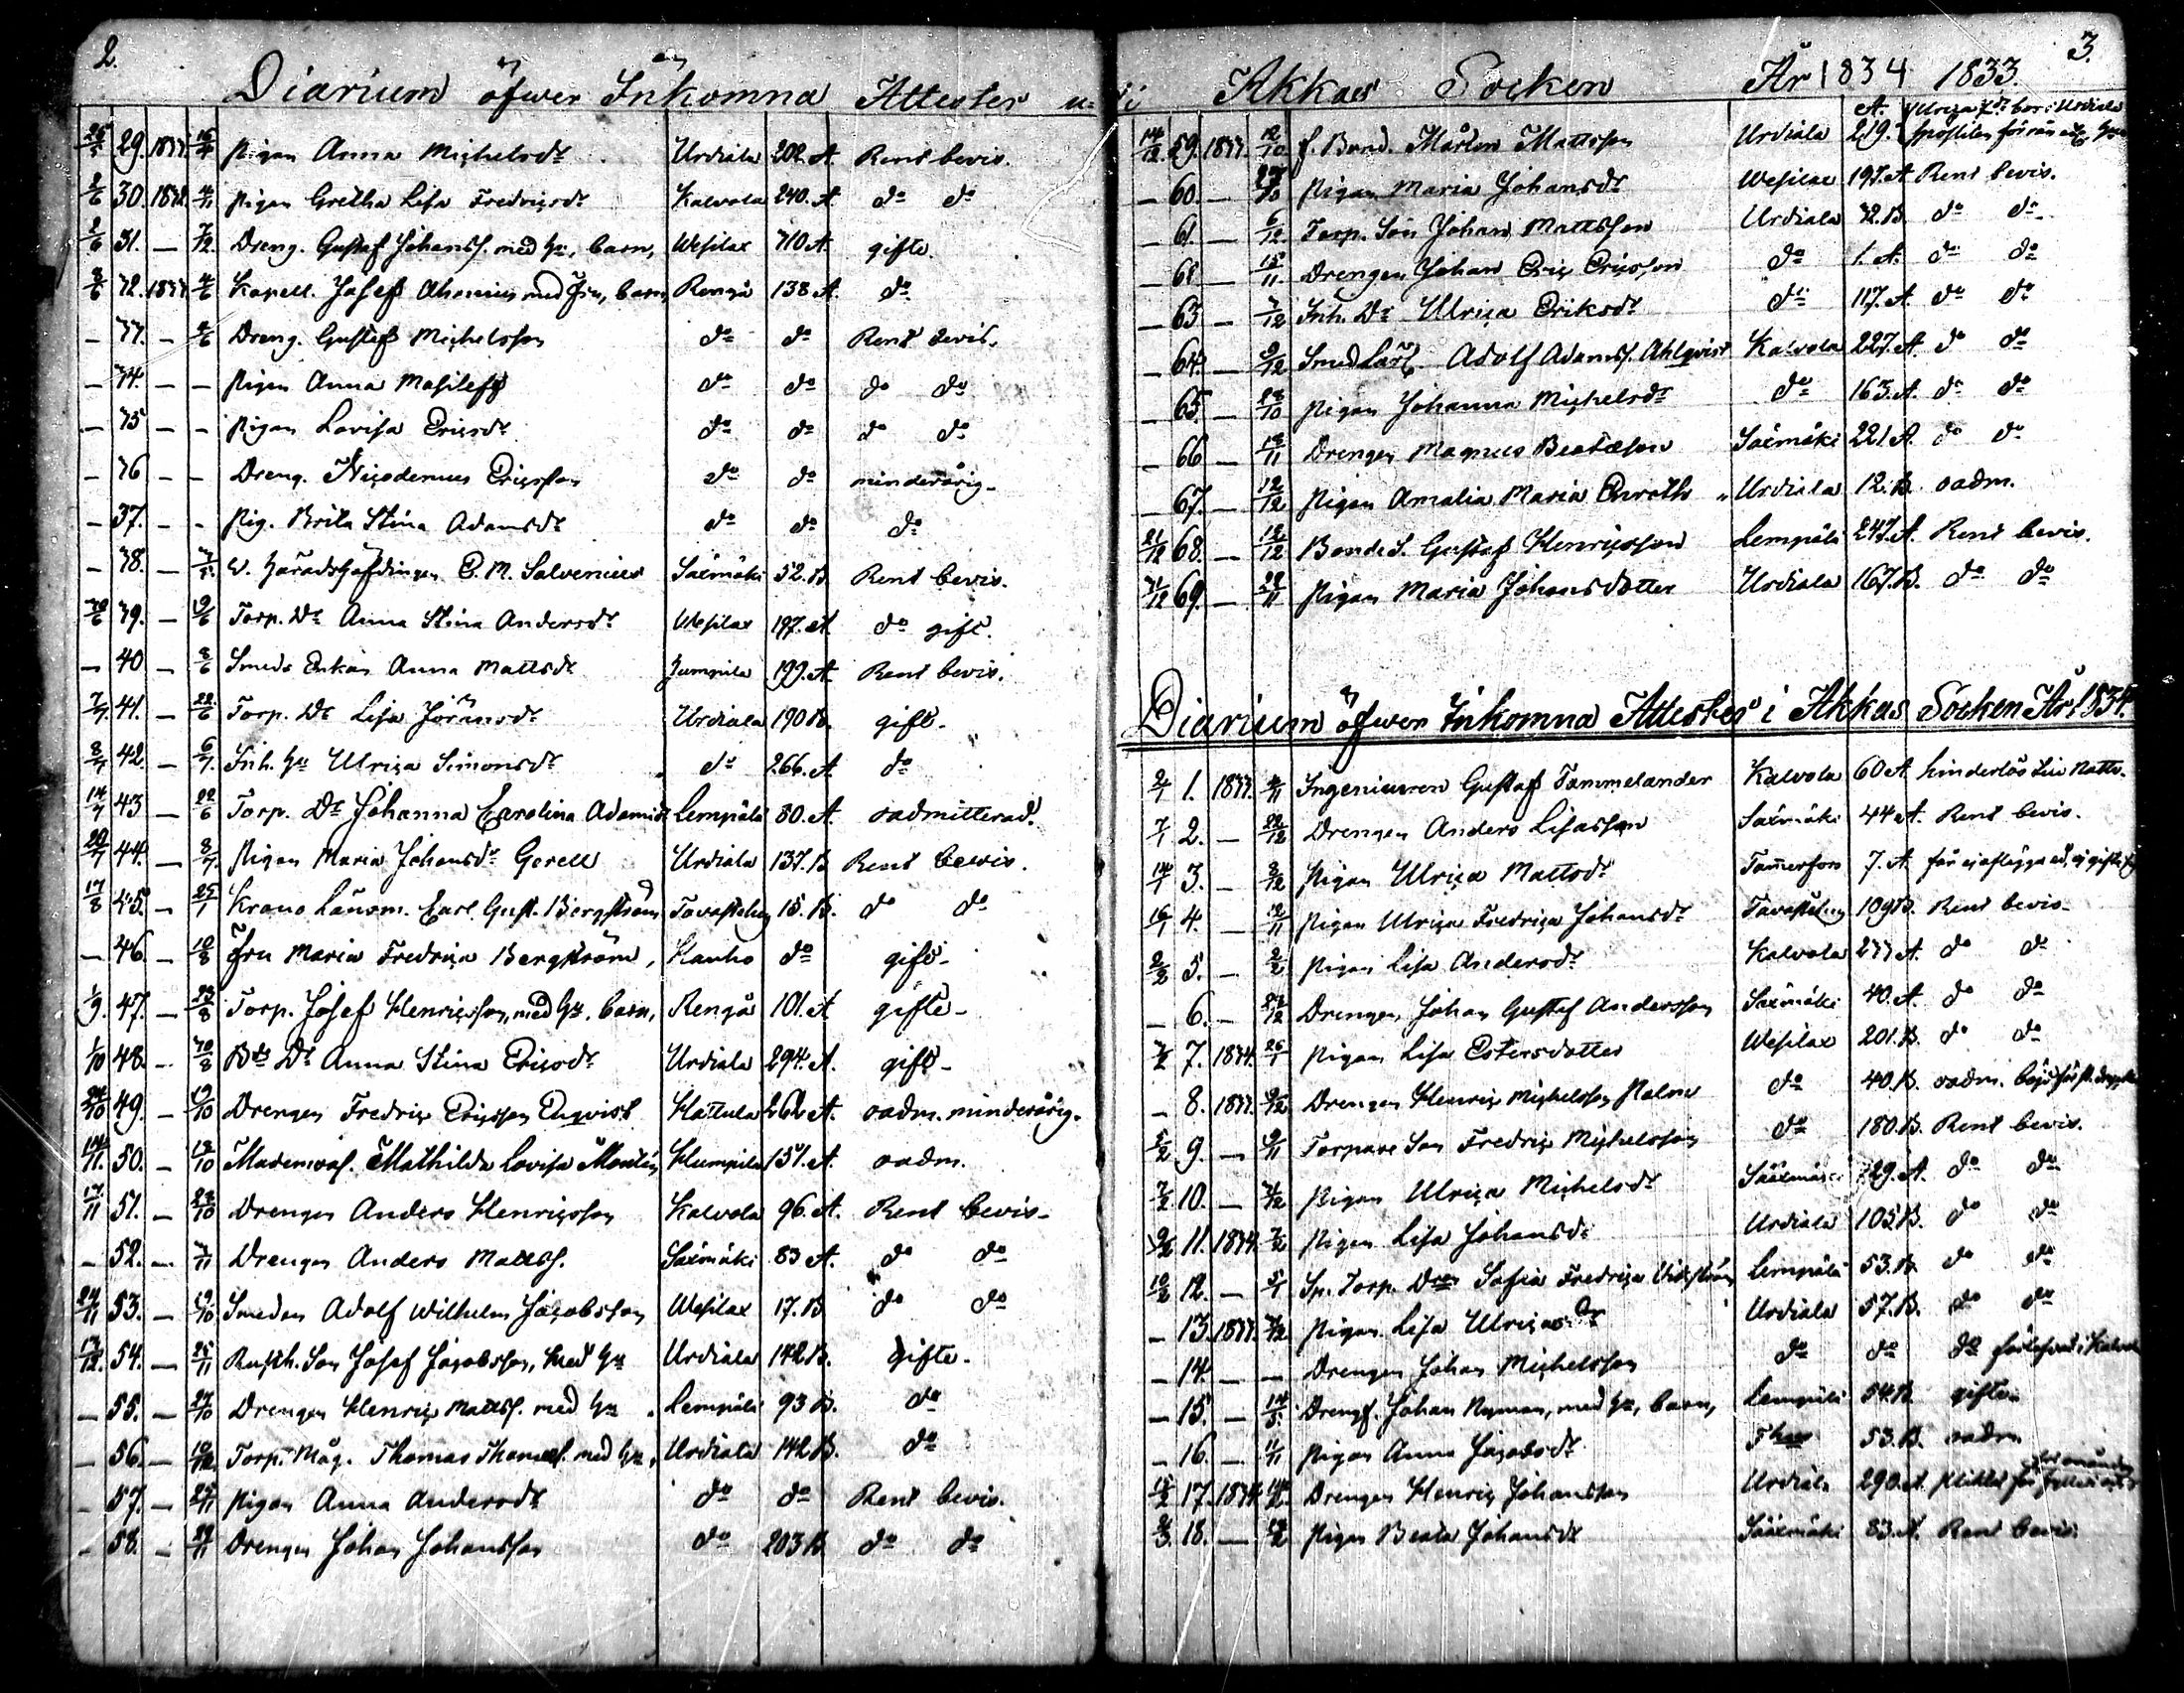 2.
Diarium öfwer Inkomna Attester
25/5 29. 1833. Pigan Anna Michelsdr Urdiala 202. A. Rent bevis.
2/6 30. 1832. 4/11 Pigan Gretha Lisa Fredricsdr Kalvola 240. A. do do
2/6 31. — 7/12. Dreng. Gustaf Johanss. med hu, barn, Wesilax 710 A. gifte.
3/6 32. 1833 4/6 Kapell. Josef Ahenius med Fru, barn, Rengå 138 A. do
— 33. — 4/6 Dreng. Gustaf Michelsson do do Rent bevis.
— 34. — — Pigan Anna Masileff do do do do
— 35 — — Pigan Lovisa Ericsdr do do do do
— 36 — — Dreng. Nicodemus Ericsson do do minderårig.
— 37. — — Pig. Brita Stina Adamsdr do do do
— 38. — V. Häradshöfdingen C. M. Salvenius Säxmäki 52. B. Rent bevis.
30/6 39. — 9/6 Torp. Dr Anna Stina Andersdr Wesilax 197. A. do gift.
— 40 — 8/6 Smeds Enkan Anna Mattsdr Jumpila 199. A. Rent bevis.
7/7. 41. — 22/6 Torp. Dr Lisa Jöransdr Urdiala 190 B. gift.
8/7 42. — 6/7. Inh. hu Ulrica Simonsdr do 266. A. do
14/7 43 — 22/6 Torp. Dr Johanna Carolina Adamsdr Lempälä 80. A. oadmitterad.
20/7 44. — 8/7. Pigan Maria Johansdr Gerell Urdiala 137. B Rent bevis.
17/8 45. — 25/1 Krono Länsm. Carl Gust. Bergström Tavastehus 15. B. do do
— 46. — 10/8 Fru Maria Fredrica Bergström, Hauho do gift.
1/9. 47. — 23/8 Torp. Josef Henricsson, med hu. barn, Rengå 101. A gifte.
1/10 48. — 30/8 Bds Dr Anna Stina Ericsdr Urdiala 294. A. gift.
20/10 49. — 19/10 Drengen Fredric Ericsson Enqvist Hattula 262 A. oadm. minderårig.
14/11. 50. — 13/10 Mademois. Mathilda Lovisa Montin Humpila 157. A. oadm.
17/11 51. — 28/10 Drengen Anders Henricsson Kalvola 96. A. Rent bevis.
— 52. — 3/11 Drengen Anders Mattss. Säxmäki 83 A. do do
24/11 53. — 19/10 Smeden Adolf Wilhelm Jacobsson Wesilax 17. B do do
13/12. 54. — 25/11 Rusth. Son Josef Jacobsson, med hu Urdiala 142 B. gifte.
— 55. — 27/10 Drengen Henric Mattss. med hu Lempälä 93 B. do
— 56. — 10/12 Torp. Måg. Thomas Thomass. med hu, Urdiala 142 B. do
— 57. — 25/11 Pigan Anna Andersdr do do Rent bevis.
— 58. — 29/11 Drengen Johan Johansson do 203 B. do do
3.
i Akkas Socken År 1834 1833.
14/12 59. 1833. 12/10 f. Bond. Mårten Mattsson Urdiala 219. A.
— 60. — 27/10 Pigan Maria Johansdr Wesilax 197. A Rent bevis.
— 61. — 6/12. Torp. Son Johan Mattsson Urdiala 72. B. do do
— 62 — 15/11. Drengen Johan Eric Ericsson do 1. A. do do
— 63 — 7/12 Inh. Dr Ulrica Eriksdr do 117. A. do do
— 64. — 9/12 Smed Lärl. Adolf Adamss. Ahlqvist Kalvola 227. A. do do
— 65. — 28/10 Pigan Johanna Michelsdr do 163. A. do do
— 66 — 18/11 Drengen Magnus Beataeson Säxmäki 221 A. do do
— 67. — 12/12 Pigan Amalia Maria Enroth Urdiala 12. B. oadm.
21/12 68. — 12/12 Bonde S. Gustaf Henricsson Lempälä 247. A. Rent bevis.
31/12 69. — 22/11 Pigan Maria Johansdotter Urdiala 167. B. do do
Diarium öfwer Inkomna Attester i Akkas Socken År 1834.
2/1 1. 1833. 4/11 Ingenieuren Gustaf Tammelander Kalvola 60 A
7/1 2. — 22/12 Drengen Anders Lisasson Säxmäki 44 A. Rent bevis.
14/1 3. — 8/12 Pigan Ulrica Mattsdr Tamerfors 7. A. får ej aflägga ed, ej gifta sig
16/1 4. — 12/11 Pigan Ulrica Fredrica Johansdr Tavastehus 109 B. Rent bevis.
2/2 5. — 2/2 Pigan Lisa Andersdr Kalvola 233 A. do do
— 6. — 27/12 Drengen Johan Gustaf Andersson Säxmäki 40. A. do do
7. 1834. 26/1 Pigan Lisa Estersdotter Wesilax 201. B. do do
— 8. 1833. Drengen Henric Michelsson Malm do 40. B. oadm.
5/2 9. — 9/11 Torpare Son Fredric Michelsson do 180. B. Rent bevis.
7/2 10. — Pigan Ulrica Michelsdr Sääxmäki 129. A. do do
9/2 11. 1834. 7/2 Pigan Lisa Johansdr Urdiala 105 B. do do
10/2 12. — 5/1 Sp. Torp. Dr Sofia Fredrica Lempälä 53. B. do do
— 13. 1833. Pigan Lisa Ulricasdr Urdiala 57. B. do do
— 14 — — Drengen Johan Michelsson do do do
— 15. — 14/5. Drengs. Johan Nyman, med hu, barn, Lempälä 54. B gifte.
— 16. — Pigan Anna Jacobsdr 53. B. oadm
17. 1834. Drengen Henric Johansson Urdiala 290. A.
18. — Pigan Beata Johansdr Sääxmäki 83. A. Rent bevis.